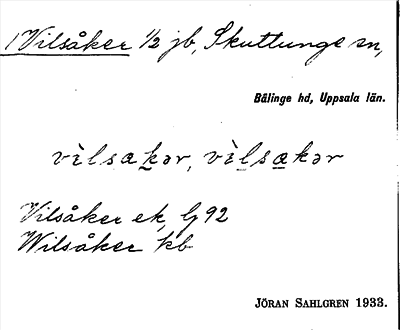 1 Vilsåker 1/2 jb, Skuttunge sn,
Bälinge hd, Uppsala län.
vìlsakər, vìlsækər
Vilsåker ek, Lj 92
Wilsåker kb
JÖRAN SAHLGREN 1933.